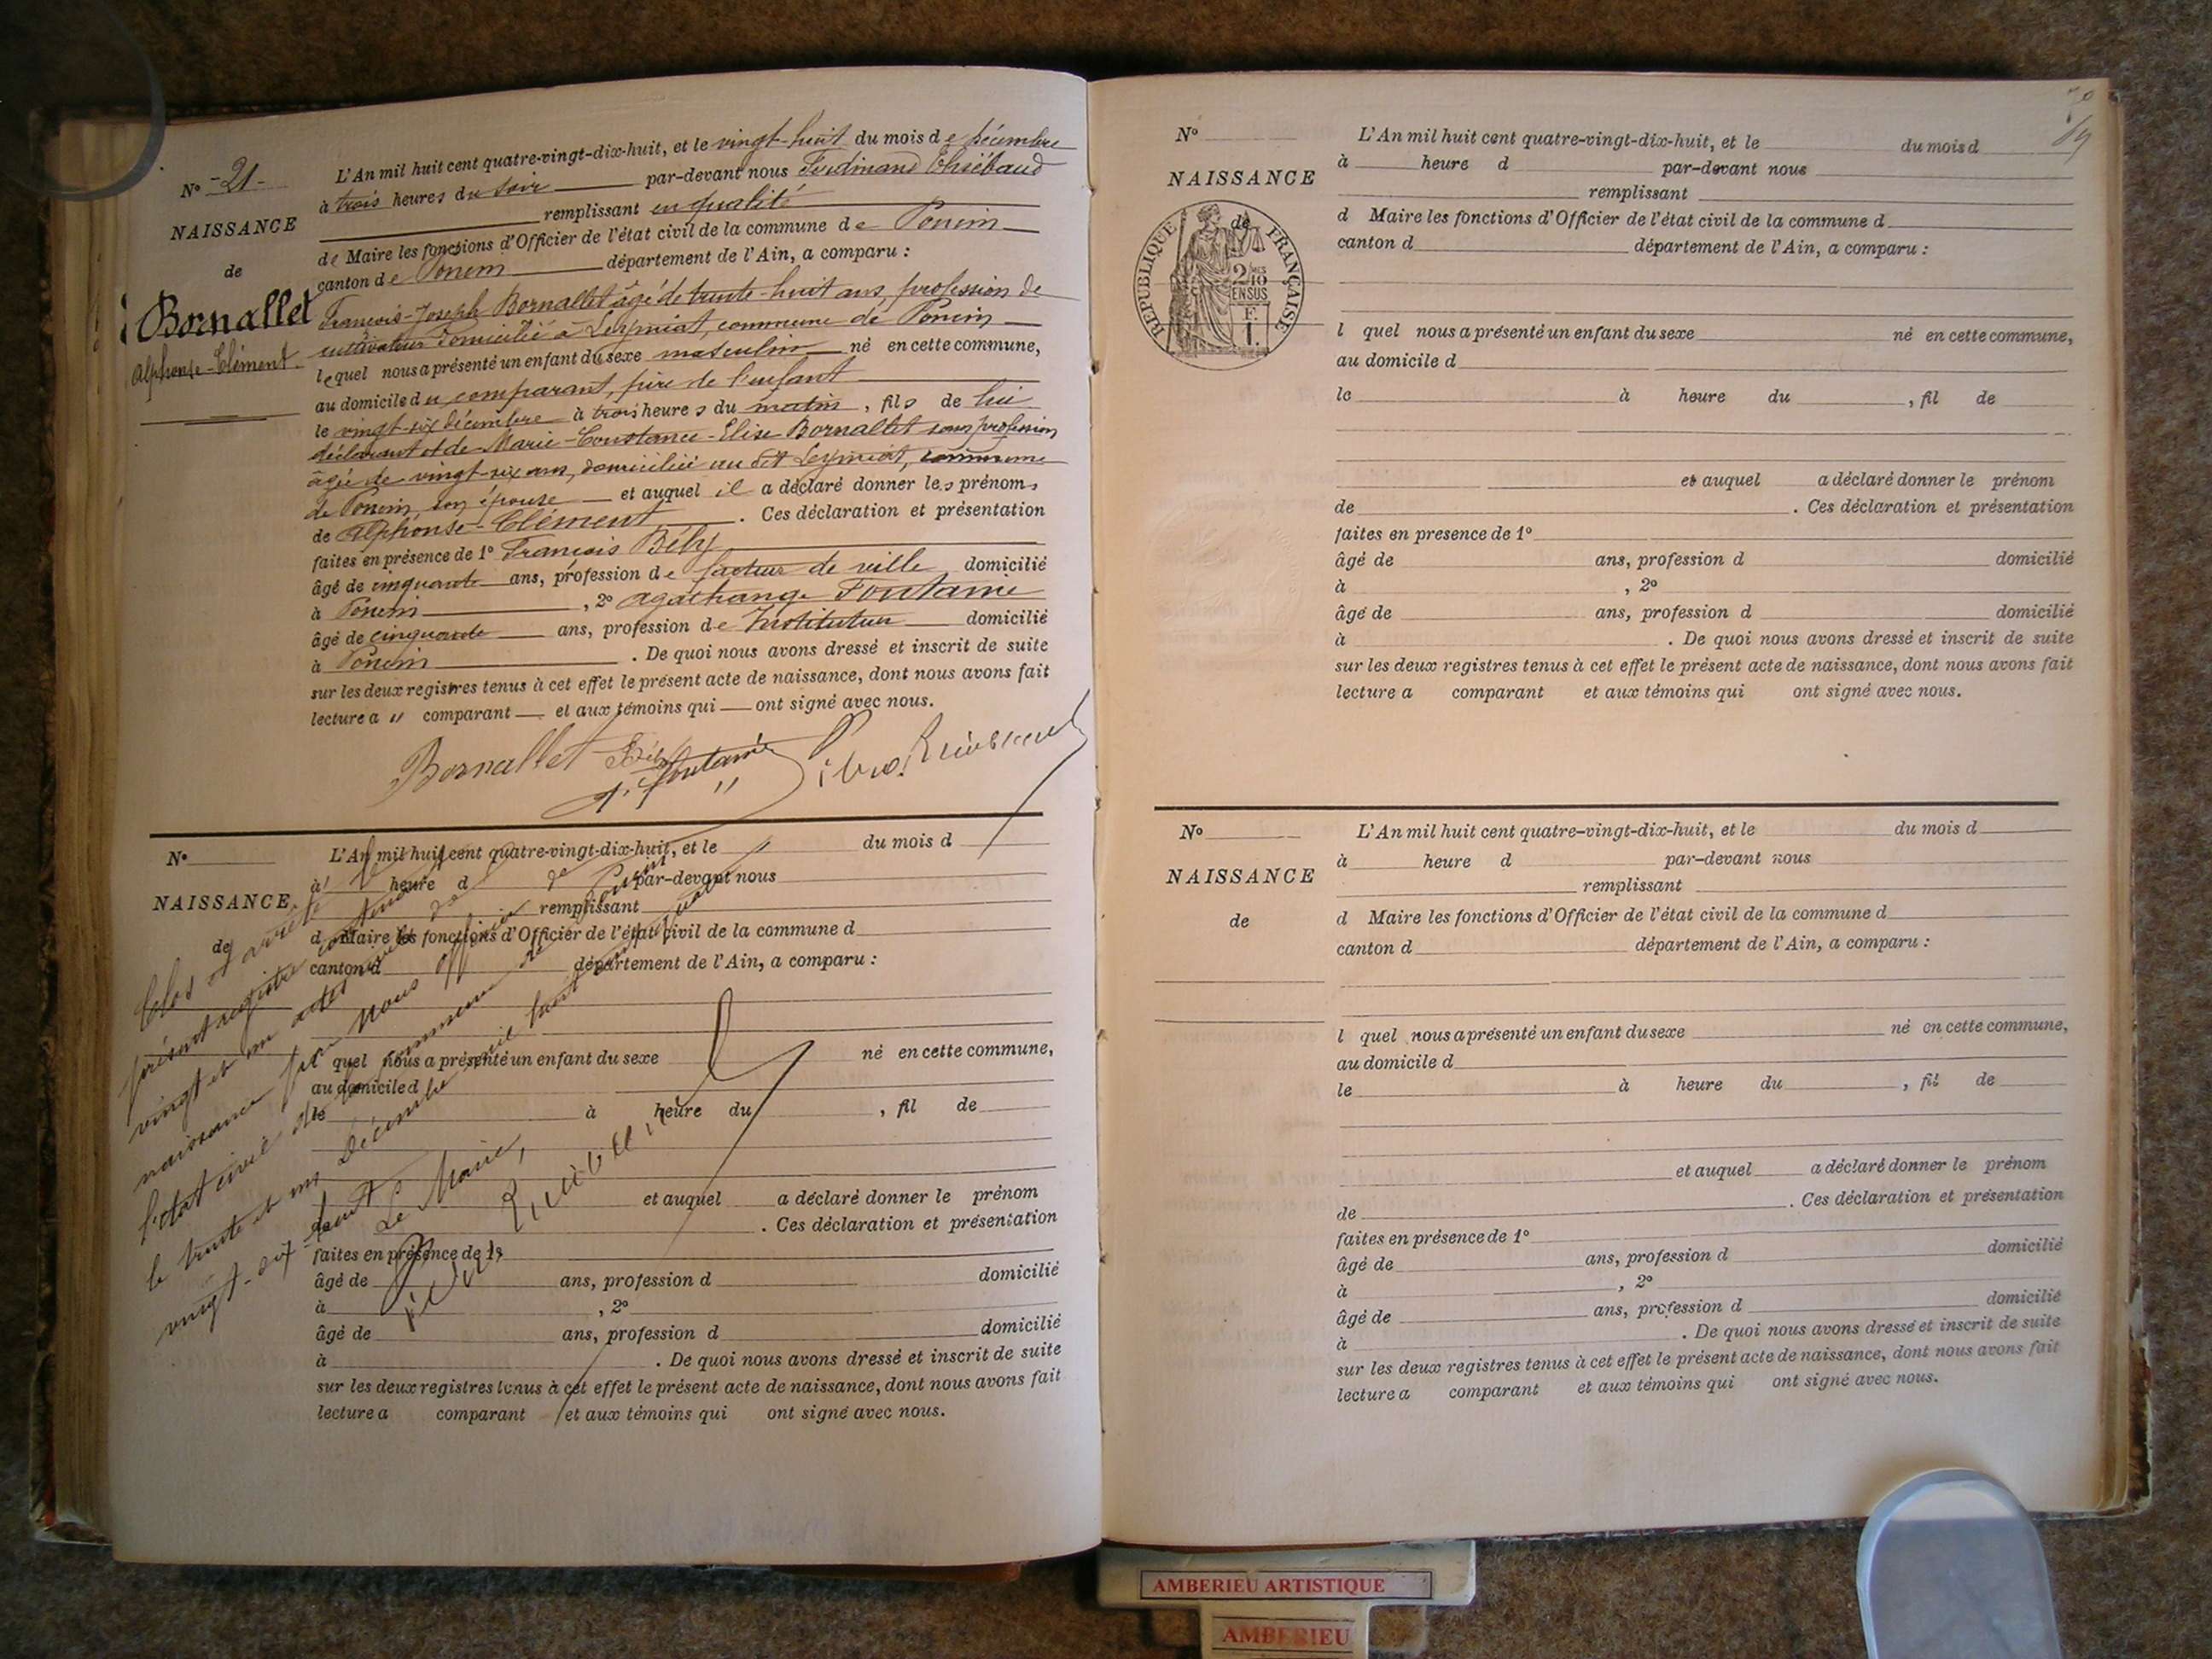 N° -21-
NAISSANCE
de
Bornallet
Alphonse-Clément
L'An mil huit cent quatre-vingt-dix-huit, et le vingt-huit du mois de décembre
à trois heures du soir par-devant nous Ferdinand Thiébaud
remplissant en qualité
de Maire les fonctions d'Officier de l'état civil de la commune de Poncin
canton de Poncin département de l'Ain, a comparu :
François-Joseph Bornallet âgé de trente-huit ans, profession de
cultivateur domicilié à Leymiat, commune de Poncin
lequel nous a présenté un enfant du sexe masculin né en cette commune,
au domicile du comparant, père de l'enfant
le vingt-six décembre à trois heures du matin, fils de lui
déclarant et de Marie-Constance-Elise Bornallet sans profession
âgée de vingt-six ans, domiciliée au dit Leymiat, commune
de Poncin, son épouse et auquel il a déclaré donner les prénoms
de Alphonse-Clément. Ces déclaration et présentation
faites en présence de 1° François Bély
âgé de cinquante ans, profession de facteur de ville domicilié
à Poncin, 2° Agathange Fontaine
âgé de cinquante ans, profession de Instituteur domicilié
à Poncin. De quoi nous avons dressé et inscrit de suite
sur les deux registres tenus à cet effet le présent acte de naissance, dont nous avons fait
lecture a u comparant et aux témoins qui ont signé avec nous.
Bornallet Bély
Fontaine
N°
NAISSANCE
de
L'An mil huit cent quatre-vingt-dix-huit, et le du mois d
à heure d par-devant nous
remplissant
d Maire les fonctions d'Officier de l'état civil de la commune d
canton d département de l'Ain, a comparu :
l quel nous a présenté un enfant du sexe né en cette commune,
au domicile d
le à heure du , fil de
et auquel a déclaré donner le prénom
de . Ces déclaration et présentation
faites en présence de 1°
âgé de ans, profession d domicilié
à , 2°
âgé de ans, profession d domicilié
à . De quoi nous avons dressé et inscrit de suite
sur les deux registres tenus à cet effet le présent acte de naissance, dont nous avons fait
lecture a comparant et aux témoins qui ont signé avec nous.
Clos et arrêté le
présent registre contenant
vingt et un actes de
naissance par nous officier de
l'état civil de la commune de Poncin
le trente et un décembre mil huit cent quatre
vingt-dix-huit
Le Maire,
N°
NAISSANCE
de
RÉPUBLIQUE FRANÇAISE
2/10 MES
EN SUS
F.
1.
L'An mil huit cent quatre-vingt-dix-huit, et le du mois d
à heure d par-devant nous
remplissant
d Maire les fonctions d'Officier de l'état civil de la commune d
canton d département de l'Ain, a comparu :
l quel nous a présenté un enfant du sexe né en cette commune,
au domicile d
le à heure du , fil de
et auquel a déclaré donner le prénom
de . Ces déclaration et présentation
faites en presence de 1°
âgé de ans, profession d domicilié
à , 2°
âgé de ans, profession d domicilié
à . De quoi nous avons dressé et inscrit de suite
sur les deux registres tenus à cet effet le présent acte de naissance, dont nous avons fait
lecture a comparant et aux témoins qui ont signé avec nous.
N°
NAISSANCE
de
L'An mil huit cent quatre-vingt-dix-huit, et le du mois d
à heure d par-devant nous
remplissant
d Maire les fonctions d'Officier de l'état civil de la commune d
canton d département de l'Ain, a comparu :
l quel nous a présenté un enfant du sexe né en cette commune,
au domicile d
le à heure du , fil de
et auquel a déclaré donner le prénom
de . Ces déclaration et présentation
faites en présence de 1°
âgé de ans, profession d domicilié
à , 2°
âgé de ans, profession d domicilié
à . De quoi nous avons dressé et inscrit de suite
sur les deux registres tenus à cet effet le présent acte de naissance, dont nous avons fait
lecture a comparant et aux témoins qui ont signé avec nous.
AMBERIEU ARTISTIQUE
AMBERIEU